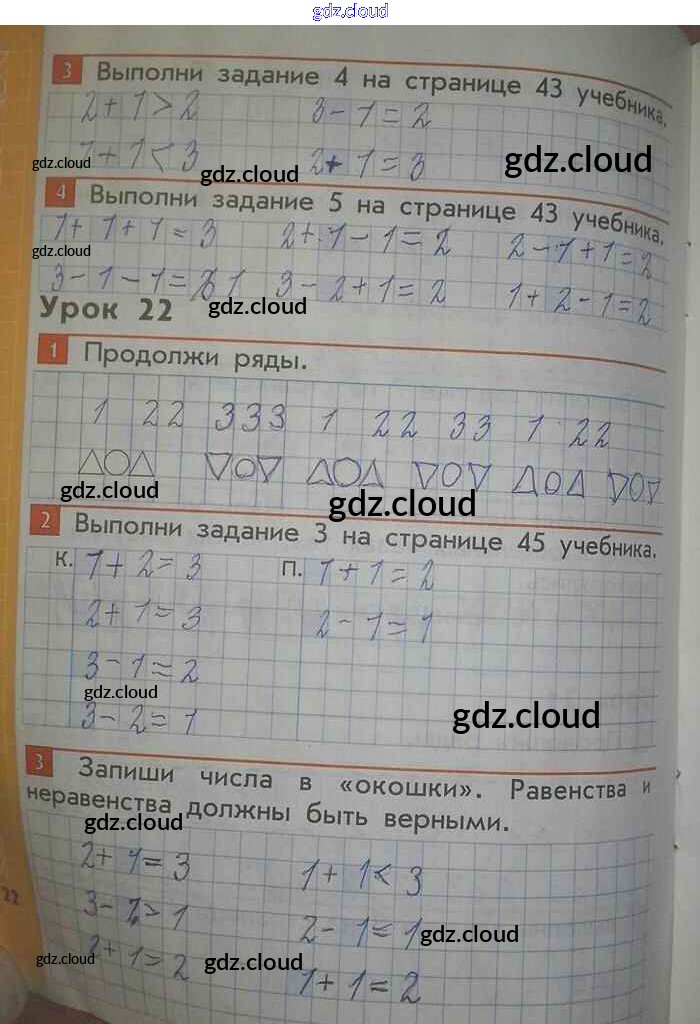 gdz.cloud
3 Выполни задание 4 на странице 43 учебника.
2+1>2 3-1=2
1+1<3 2+1=3
gdz.cloud gdz.cloud gdz.cloud
4 Выполни задание 5 на странице 43 учебника.
1+1+1=3 2+1-1=2 2-1+1=2
gdz.cloud
3-1-1=1 3-2+1=2 1+2-1=2
Урок 22 gdz.cloud
1 Продолжи ряды.
1 22 333 1 22 33 1 22
gdz.cloud gdz.cloud
2 Выполни задание 3 на странице 45 учебника.
к. 1+2=3 п. 1+1=2
2+1=3 2-1=1
3-1=2
gdz.cloud gdz.cloud
3-2=1
3 Запиши числа в «окошки». Равенства и
неравенства должны быть верными.
gdz.cloud
2+1=3 1+1<3
3-1>1 2-1=1
22
gdz.cloud
2+1=2 1+1=2
gdz.cloud gdz.cloud